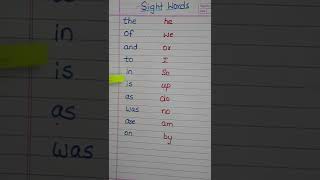 Sight Words
the he
of we
and or
to I
in so
is up
as do
was no
are am
on by
in
is
as
was